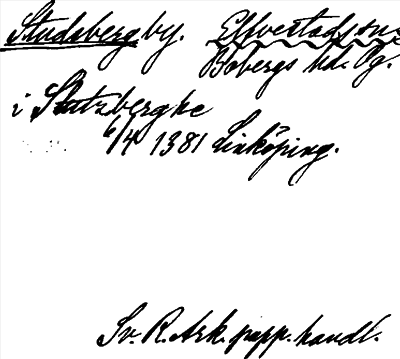 Studsberg by. Elfvestads sn.
Bobergs hd. Ög.
i Stutzberghe
6/4 1381 Linköping.
Sv. R. Ark. papp. handl.